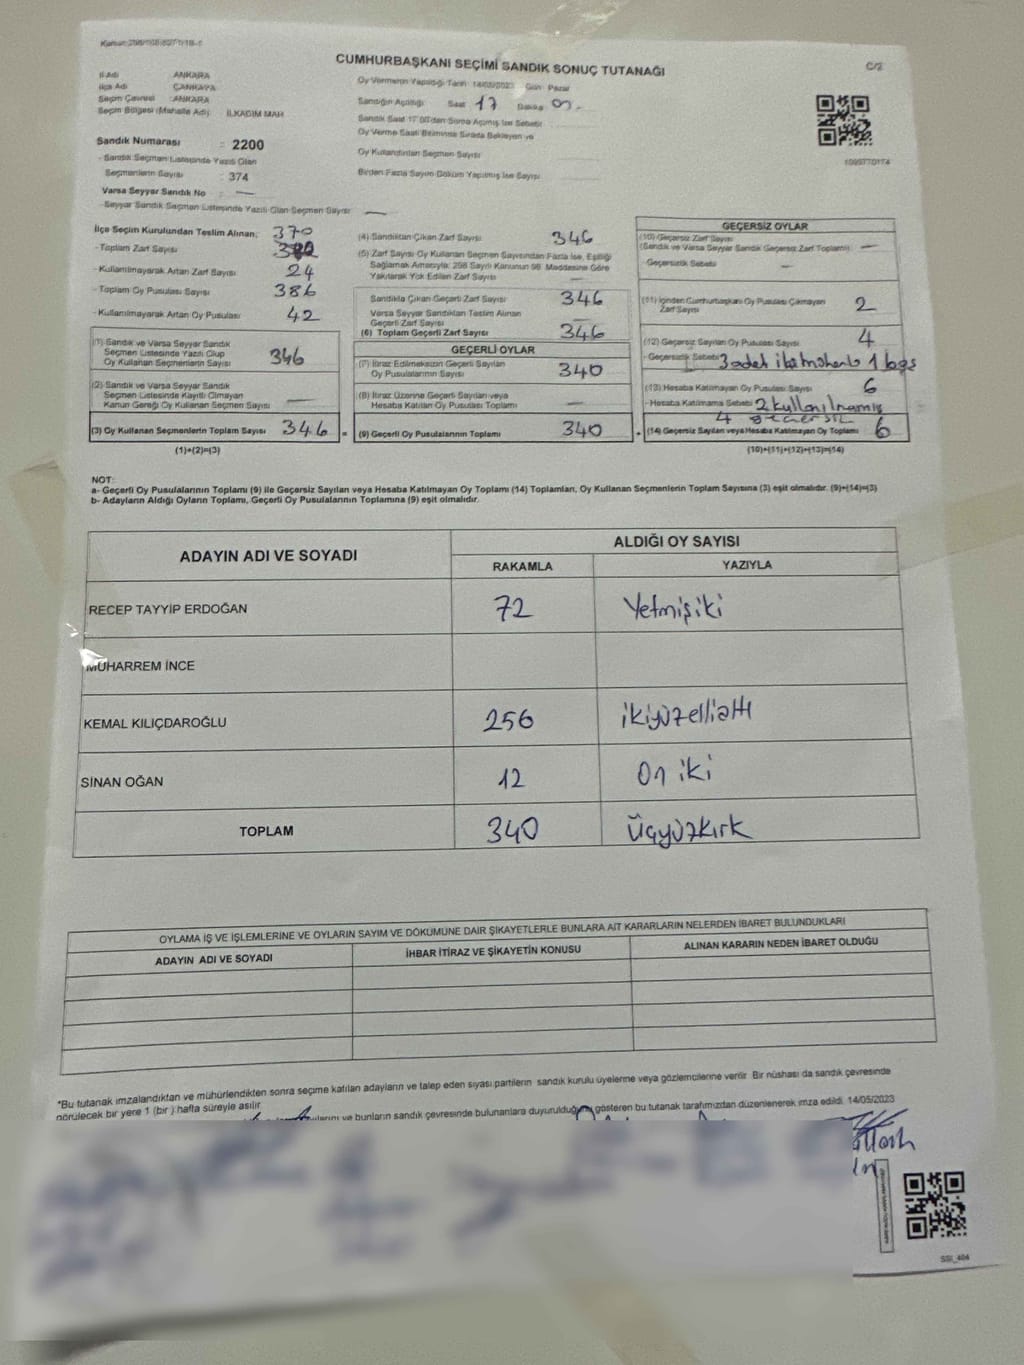 CUMHURBAŞKANI SEÇİMİ SANDIK SONUÇ TUTANAĞI
C/2
İl Adı : ANKARA
İlçe Adı : ÇANKAYA
Seçim Çevresi : ANKARA
Seçim Bölgesi (Mahalle Adı) : İLKADIM MAH
Sandık Numarası : 2200
- Sandık Seçmen Listesinde Yazılı Olan
Seçmenlerin Sayısı : 374
Varsa Seyyar Sandık No : —
- Seyyar Sandık Seçmen Listesinde Yazılı Olan Seçmen Sayısı : —
Oy Vermenin Yapıldığı Tarih : 14/05/2023 Gün : Pazar
Sandığın Açıldığı Saat 17 Dakika
Sandık Saat 17:00'den Sonra Açılmış İse Sebebi
Oy Verme Saati Bitiminde Sırada Bekleyen ve
Oy Kullandırılan Seçmen Sayısı
Birden Fazla Sayım Döküm Yapılmış İse Sayısı
İlçe Seçim Kurulundan Teslim Alınan; 370
- Toplam Zarf Sayısı
- Kullanılmayarak Artan Zarf Sayısı 24
- Toplam Oy Pusulası Sayısı 386
- Kullanılmayarak Artan Oy Pusulası 42
(1) Sandık ve Varsa Seyyar Sandık
Seçmen Listesinde Yazılı Olup
Oy Kullanan Seçmenlerin Sayısı 346
(2) Sandık ve Varsa Seyyar Sandık
Seçmen Listesinde Kayıtlı Olmayan
Kanun Gereği Oy Kullanan Seçmen Sayısı —
(3) Oy Kullanan Seçmenlerin Toplam Sayısı 346 =
(1)+(2)=(3)
(4) Sandıktan Çıkan Zarf Sayısı 346
(5) Zarf Sayısı Oy Kullanan Seçmen Sayısından Fazla İse, Eşitliği
Sağlamak Amacıyla; 298 Sayılı Kanunun 98. Maddesine Göre
Yakılarak Yok Edilen Zarf Sayısı —
Sandıkta Çıkan Geçerli Zarf Sayısı 346
Varsa Seyyar Sandıktan Teslim Alınan
Geçerli Zarf Sayısı —
(6) Toplam Geçerli Zarf Sayısı 346
GEÇERLİ OYLAR
(7) İtiraz Edilmeksizin Geçerli Sayılan
Oy Pusulalarının Sayısı 340
(8) İtiraz Üzerine Geçerli Sayılan veya
Hesaba Katılan Oy Pusulası Toplamı —
(9) Geçerli Oy Pusulalarının Toplamı 340 +
GEÇERSİZ OYLAR
(10) Geçersiz Zarf Sayısı
(Sandık ve Varsa Seyyar Sandık Geçersiz Zarf Toplamı) —
- Geçersizlik Sebebi —
(11) İçinden Cumhurbaşkanı Oy Pusulası Çıkmayan
Zarf Sayısı 2
(12) Geçersiz Sayılan Oy Pusulası Sayısı 4
- Geçersizlik Sebebi 3 adet iki mühürlü 1 boş
(13) Hesaba Katılmayan Oy Pusulası Sayısı 6
- Hesaba Katılmama Sebebi 2 kullanılmamış
4 geçersiz
(14) Geçersiz Sayılan veya Hesaba Katılmayan Oy Toplamı 6
(10)+(11)+(12)+(13)=(14)
NOT:
a- Geçerli Oy Pusulalarının Toplamı (9) ile Geçersiz Sayılan veya Hesaba Katılmayan Oy Toplamı (14) Toplamları, Oy Kullanan Seçmenlerin Toplam Sayısına (3) eşit olmalıdır. (9)+(14)=(3)
b- Adayların Aldığı Oyların Toplamı, Geçerli Oy Pusulalarının Toplamına (9) eşit olmalıdır.
ADAYIN ADI VE SOYADI ALDIĞI OY SAYISI
RAKAMLA YAZIYLA
RECEP TAYYİP ERDOĞAN 72 Yetmişiki
MUHARREM İNCE
KEMAL KILIÇDAROĞLU 256 ikiyüzellialtı
SİNAN OĞAN 12 On iki
TOPLAM 340 Üçyüzkırk
OYLAMA İŞ VE İŞLEMLERİNE VE OYLARIN SAYIM VE DÖKÜMÜNE DAİR ŞİKAYETLERLE BUNLARA AİT KARARLARIN NELERDEN İBARET BULUNDUKLARI
ADAYIN ADI VE SOYADI İHBAR İTİRAZ VE ŞİKAYETİN KONUSU ALINAN KARARIN NEDEN İBARET OLDUĞU
*Bu tutanak imzalandıktan ve mühürlendikten sonra seçime katılan adayların ve talep eden siyasi partilerin sandık kurulu üyelerine veya gözlemcilerine verilir. Bir nüshası da sandık çevresinde
görülecek bir yere 1 (bir) hafta süreyle asılır.
ve bunların sandık çevresinde bulunanlara duyurulduğunu gösteren bu tutanak tarafımızdan düzenlenerek imza edildi. 14/05/2023